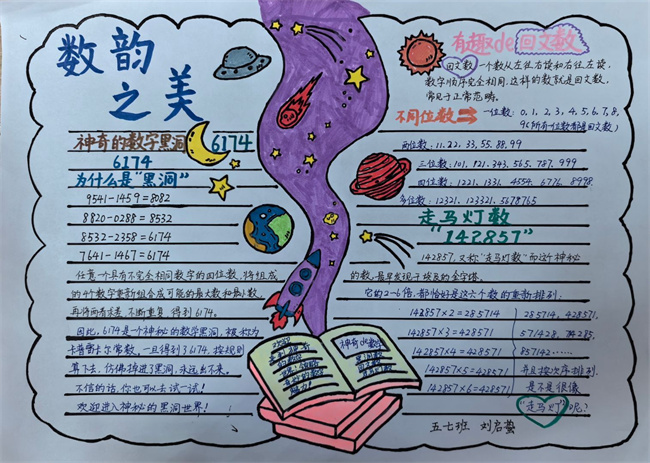 数韵
之美
神奇的数字黑洞 6174
6174
为什么是"黑洞"
9541-1459=8082
8820-0288=8532
8532-2358=6174
7641-1467=6174
任意一个具有不完全相同数字的四位数,将组成
的4个数字重新组合成可能的最大数和最小数,
再将两者求差,不断重复,得到6174。
因此,6174是一个神秘的数字黑洞,被称为
卡普雷卡尔常数。一旦得到了6174,按规则
算下去,仿佛掉进了黑洞,永远出不来。
不信的话,你也可以去试一试!
欢迎进入神秘的黑洞世界!
有趣de回文数
回文数一个数从左往右读和右往左读,
数字顺序完全相同,这样的数就是回文数,
常见于正常范畴。
不同位数 一位数:0,1,2,3,4,5,6,7,8,
9(所有一位数都是回文数)
两位数:11.22.33.55.88.99
三位数:101.121.343.565.787.999
四位数:1221.1331.4554.6776.8998
多位数:12321.123321.5678765
走马灯数
"142857"
142857,又称"走马灯数"而这个神秘
的数,最早发现于埃及的金字塔。
它的2-6倍,都恰好是这六个数的重新排列:
142857×2=285714
142857×3=428571
142857×4=428571
142857×5=428571
142857×6=428571
285714,428571,
571428,
857142……
并且按次序排列.
是不是很像
"走马灯"呢?
神奇de数学
五七班 刘启萤